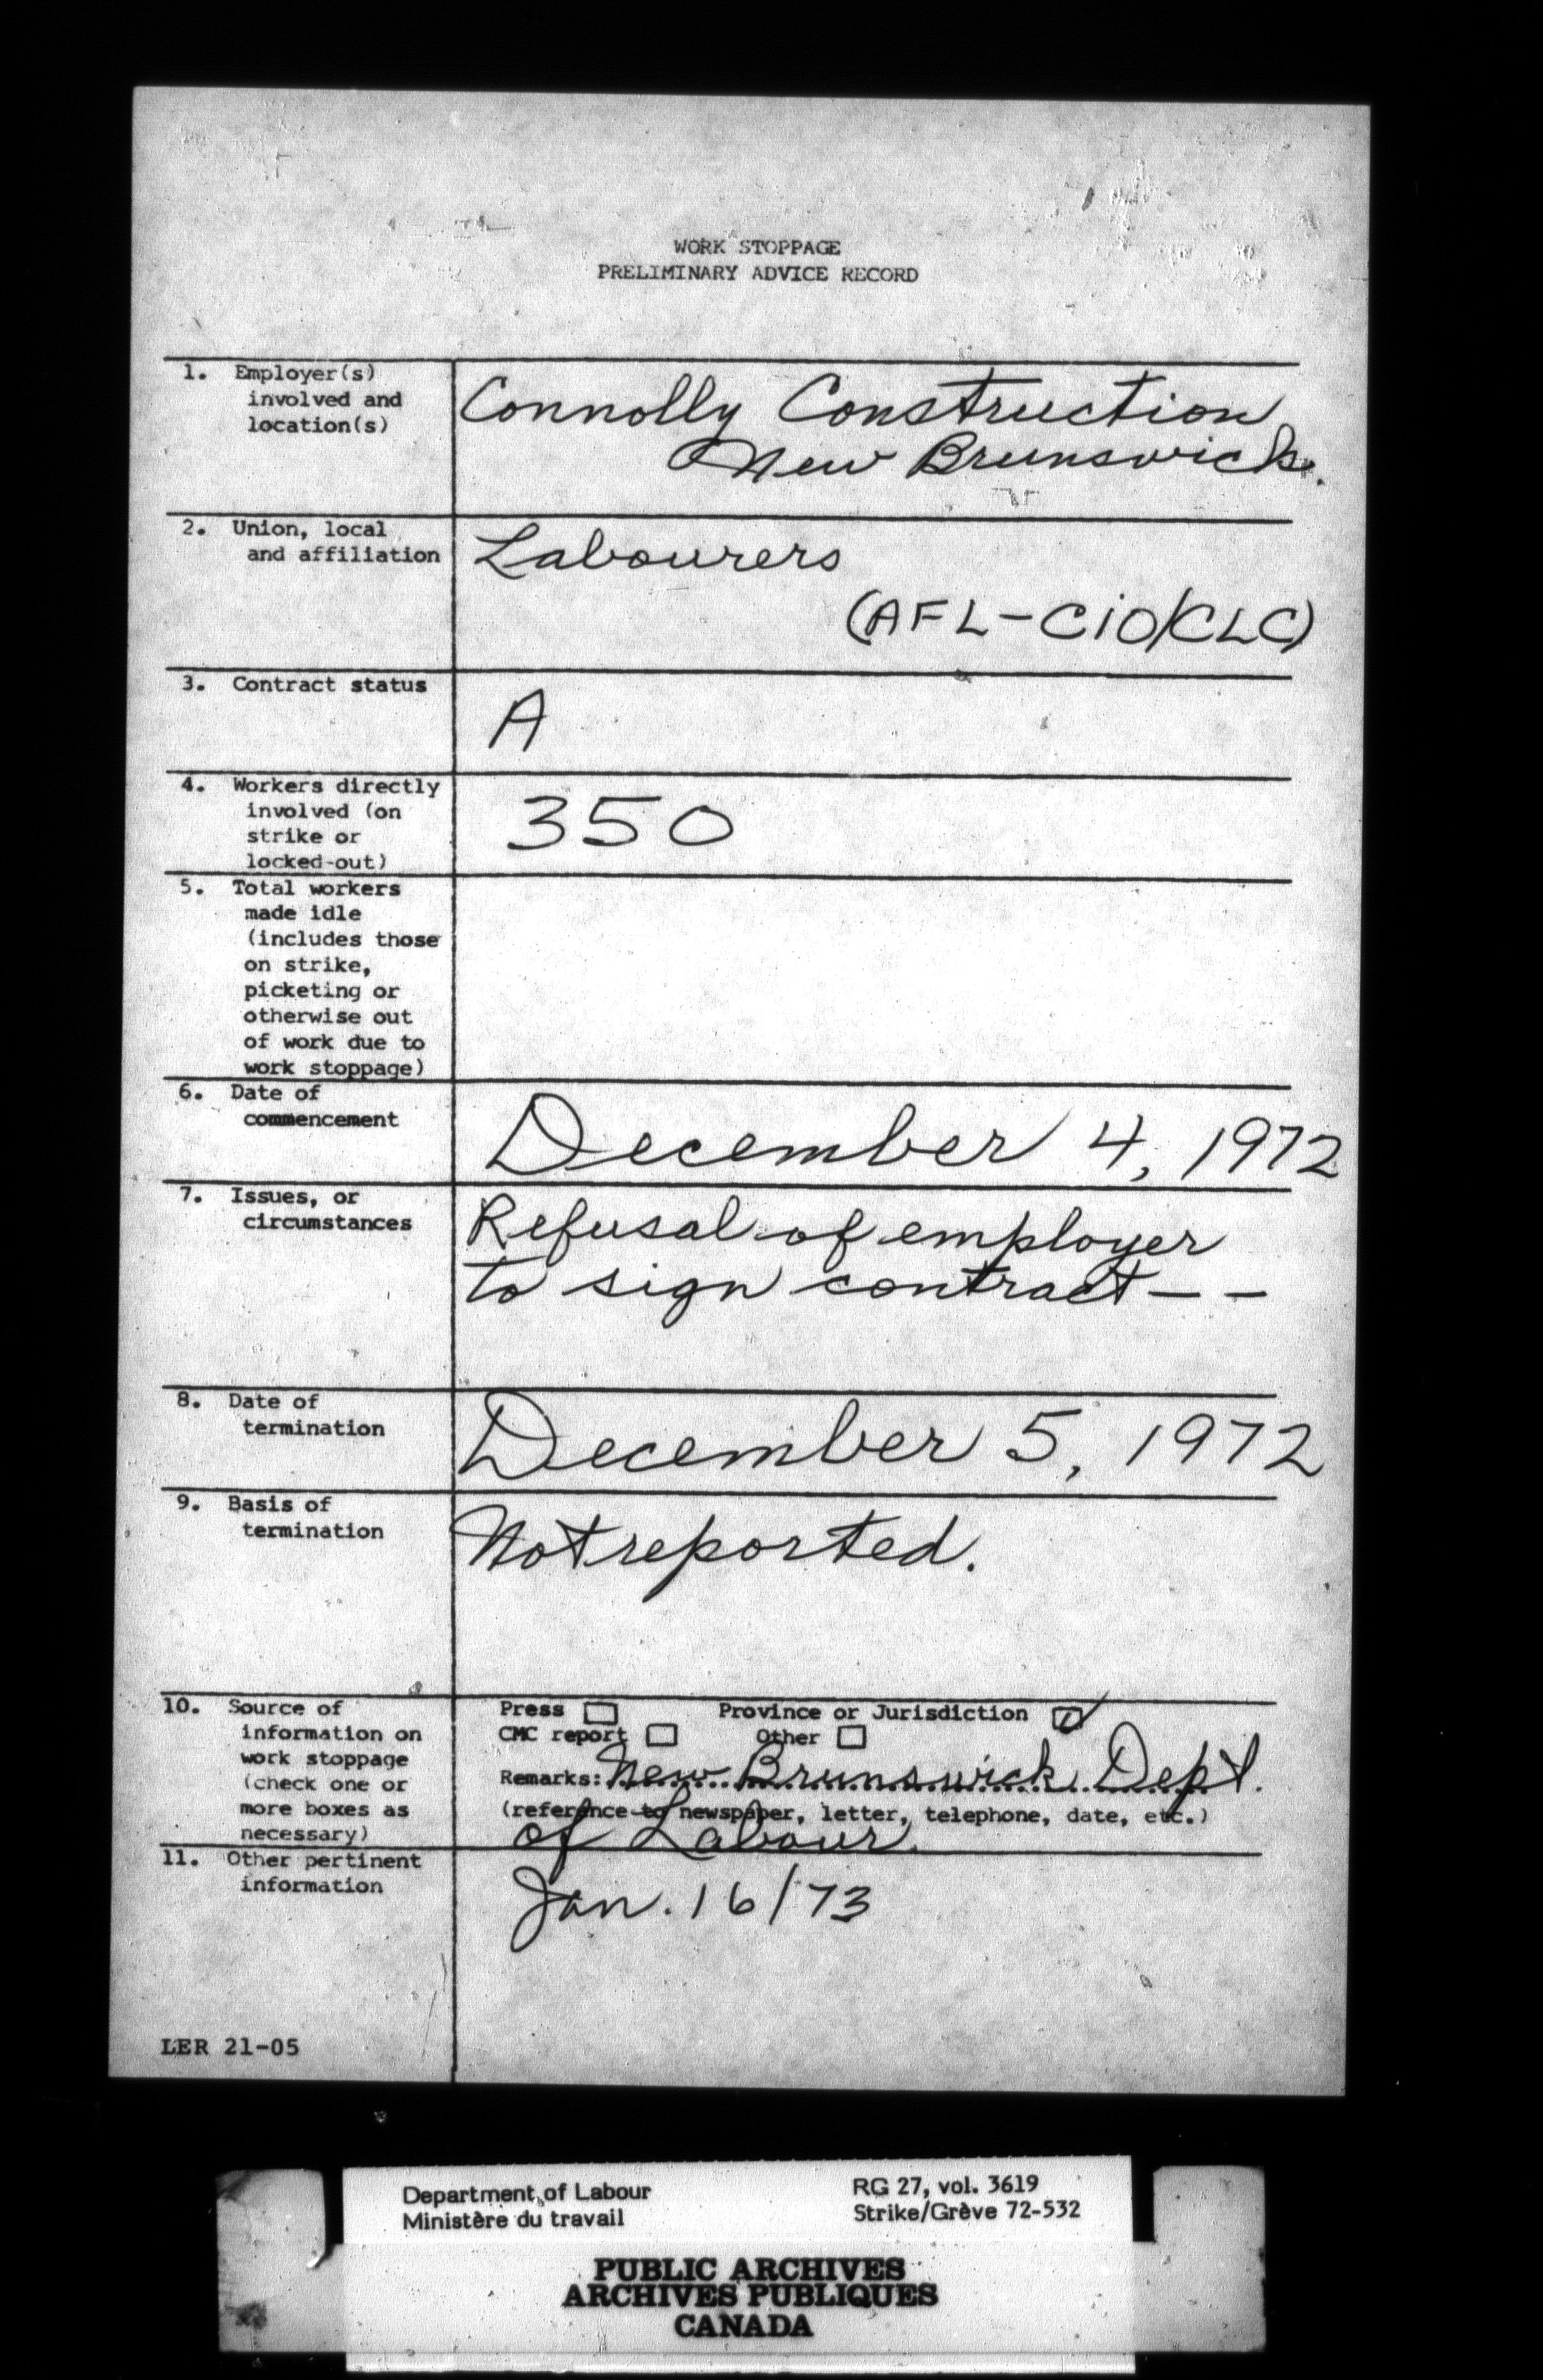 WORK STOPPAGE
PRELIMINARY ADVICE RECORD
1. Employer(s)
involved and
location(s)
Connolly Construction
New Brunswick.
2. Union, local
and affiliation
Labourers
(AFL-CiO/CLC)
3. Contract status
A
4. Workers directly
involved (on
strike or
locked-out)
350
5. Total workers
made idle
(includes those
on strike,
picketing or
otherwise out
of work due to
work stoppage)
6. Date of
commencement
December 4, 1972
7. Issues, or
circumstances
Refusal of employer
to sign contract - -
8. Date of
termination
December 5, 1972
9. Basis of
termination
Not reported.
10. Source of
information on
work stoppage
(check one or
more boxes as
necessary)
Press Province or Jurisdiction
CMC report Other
Remarks: New Brunswick Dept.
(reference to newspaper, letter, telephone, date, etc.)
of Labour.
11. Other pertinent
information
Jan. 16/73
LER 21-05
Department of Labour RG 27, vol. 3619
Ministère du travail Strike/Grève 72-532
PUBLIC ARCHIVES
ARCHIVES PUBLIQUES
CANADA